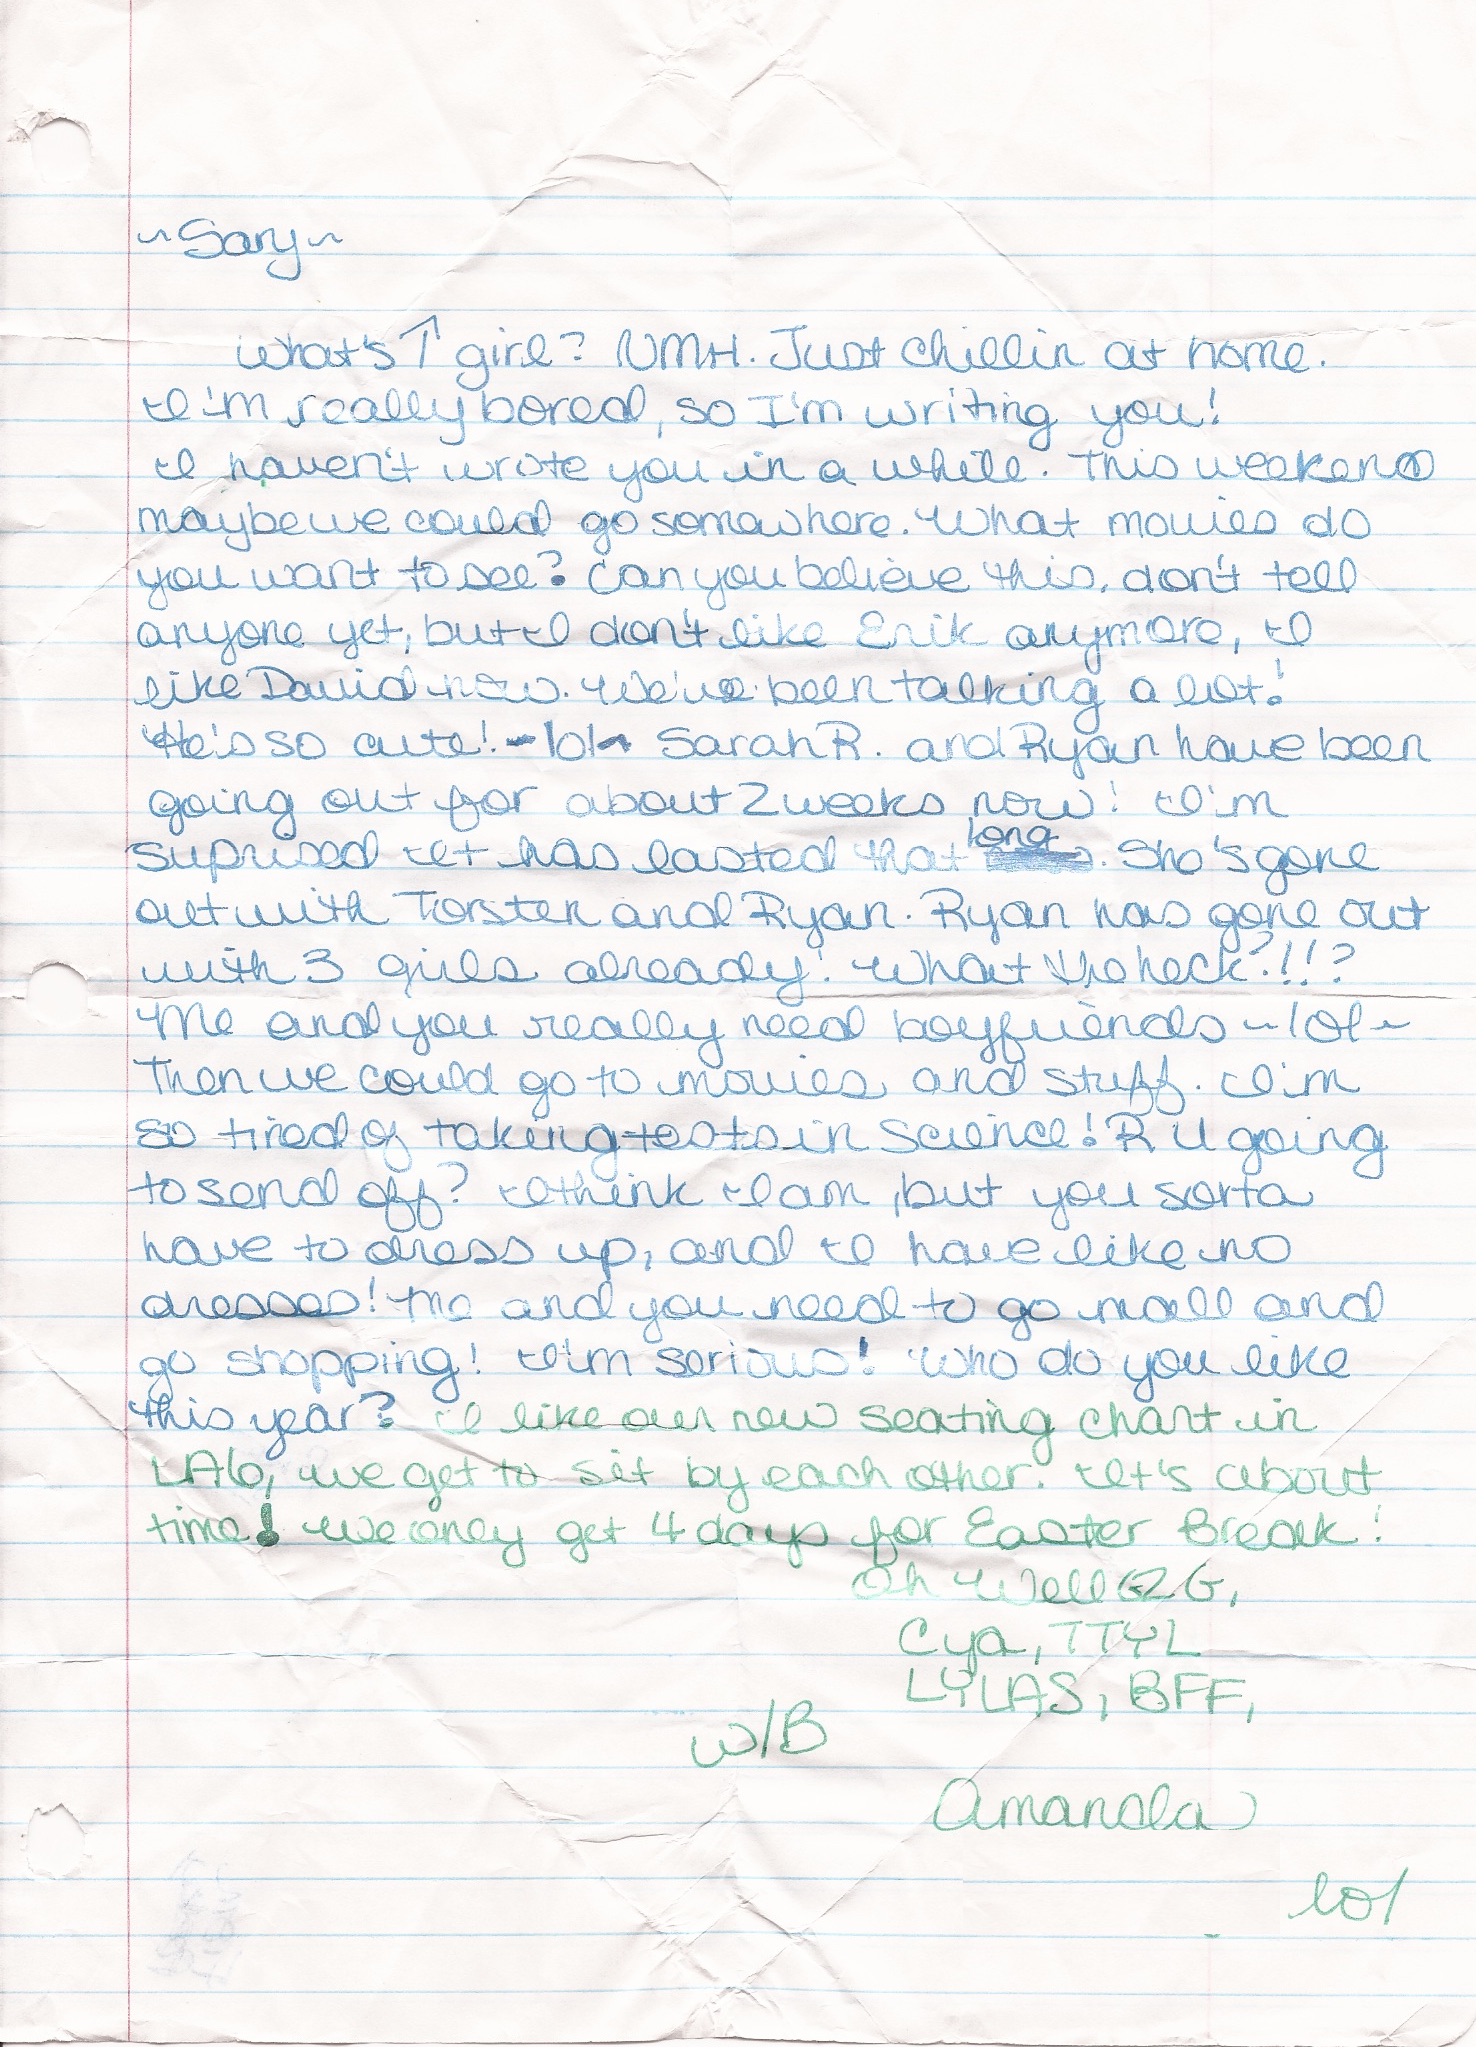 ~Sary~
What's ↑ girl? NMH. Just chillin at home.
I'm really bored, so I'm writing you!
I haven't wrote you in a while. This weekend
maybe we could go somewhere. What movies do
you want to see? Can you believe this, don't tell
anyone yet, but I don't like Erik anymore, I
like David now. We've been talking a lot!
He's so cute! ~lol~ Sarah R. and Ryan have been
going out for about 2 weeks now! I'm
suprised it has lasted that long. She's gone
out with Torsten and Ryan. Ryan has gone out
with 3 girls already! What the heck?!!?
Me and you really need boyfriends ~lol~
Then we could go to movies and stuff. I'm
so tired of taking tests in Science! R U going
to send off? I think I am, but you sorta
have to dress up, and I have like no
dresses! Me and you need to go mall and
go shopping! I'm serious! Who do you like
this year? I like our new seating chart in
LA6, we get to sit by each other. It's about
time! We only get 4 days for Easter Break!
Oh Well G2G,
Cya, TTYL
LYLAS, BFF,
W/B
Amanda
lol